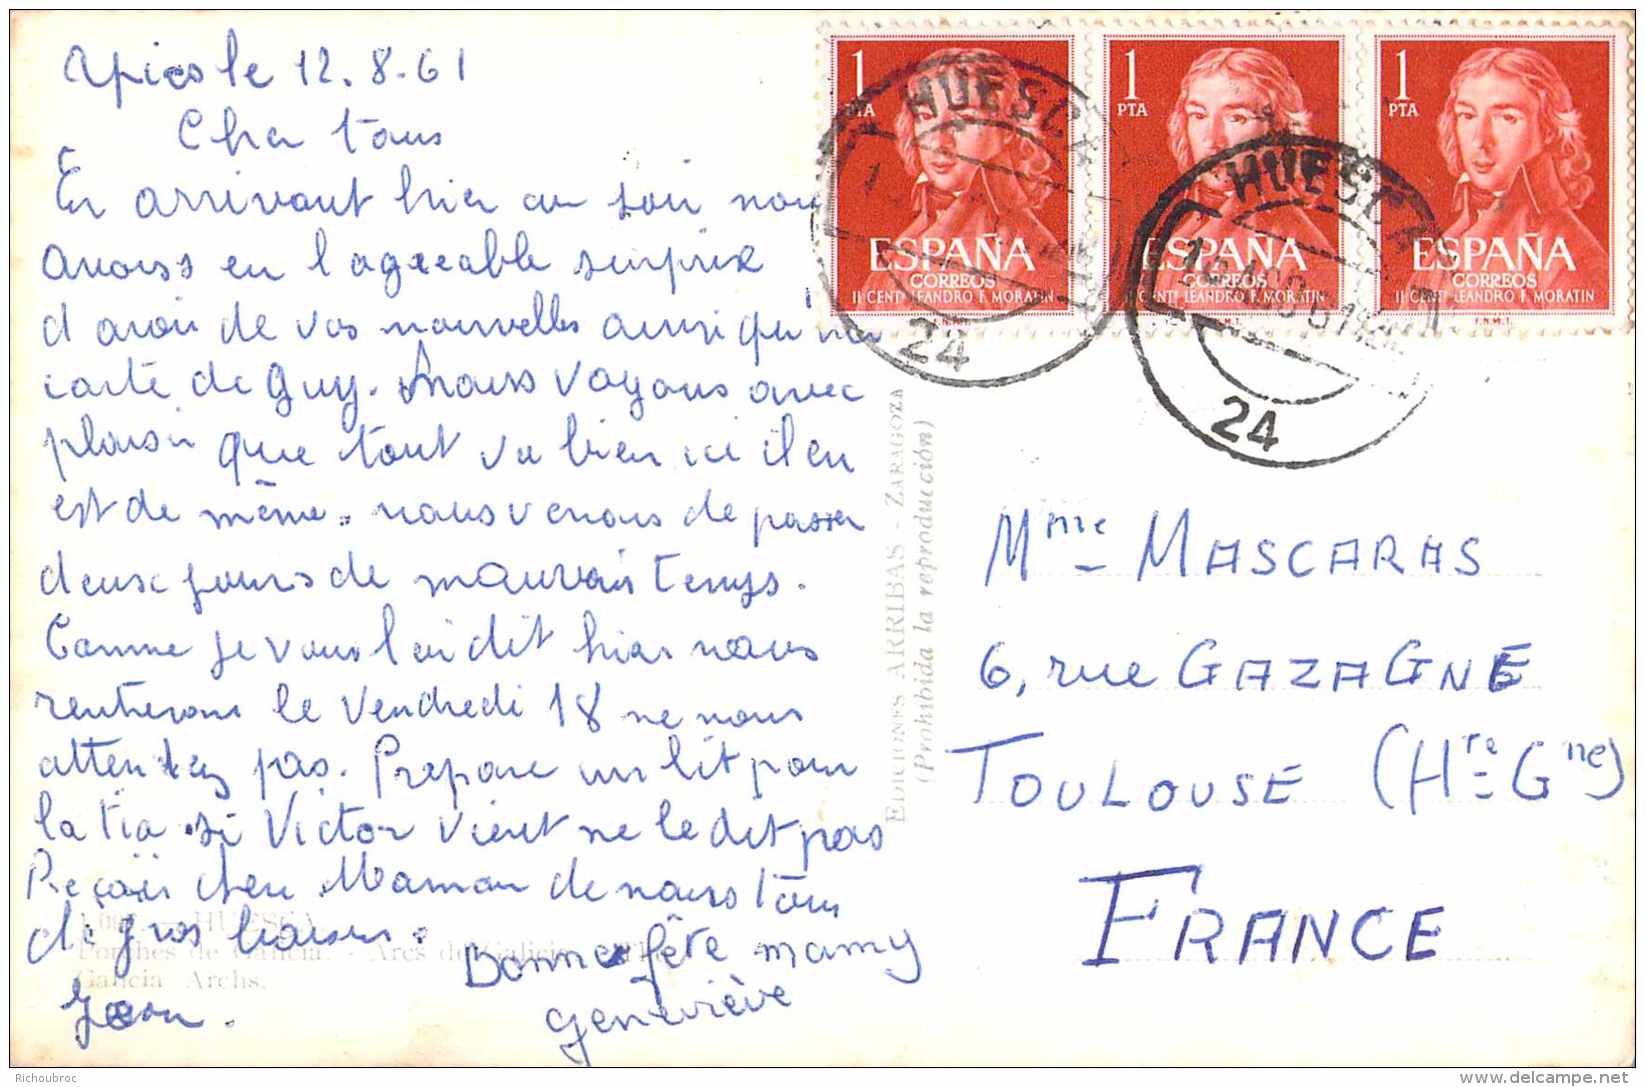 Apies le 12.8.61
Cher tous
En arrivant hier au soir nous
avons eu l agreable surprise
d avoir de vos nouvelles ainsi qu'une
carte de Guy. Nous voyons avec
plaisir que tout va bien ici il en
est de même. nous venons de passer
deux jours de mauvais temps.
Comme je vous l ai dit hier nous
rentrerons le Vendredi 18 ne nous
attendez pas. Prepare un lit pour
la tia si Victor vient ne le dit pas
Reçois chere Maman de nous tous
de gros baisers.
Jean.
Bonne fête mamy
geneviève
1.002 — HUESCA
Porches de Galicia. - Arcs de Galicia. - The
Galicia Archs.
EDICIONES ARRIBAS - ZARAGOZA
(Prohibida la reproducción)
1 PTA
ESPAÑA
CORREOS
II CENTº LEANDRO F. MORATIN
F.N.M.T.
1 PTA
ESPAÑA
CORREOS
II CENTº LEANDRO F. MORATIN
F.N.M.T.
1 PTA
ESPAÑA
CORREOS
II CENTº LEANDRO F. MORATIN
F.N.M.T.
HUESCA
24
HUESCA
24
Mme MASCARAS
6, rue GAZAGNE
TOULOUSE (Hte-Gne)
FRANCE
Richoubroc
www.delcampe.net